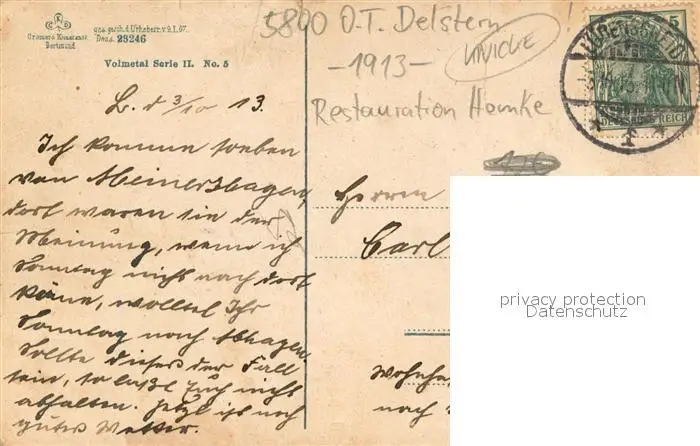 Cramers Kunstanst.
Dortmund
ges. gesch. d. Urheberr. v. 9. I. 07.
Dess. 23246
Volmetal Serie II. No. 5
5800 O.T. Delstern
UNICKE
-1913-
Restauration Hemke
5
LÜDENSCHEID
REICH
L. d 3/10 13.
Ich komme soeben
von Meinerzhagen,
dort waren sie der
Meinung, wenn ich
Sonntag nicht nach dort
käme, wolltet Ihr
Sonntag nach Hagen.
Sollte dieses der Fall
sein, so laßt Euch nicht
abhalten. Jetzt ist noch
gutes Wetter.
Herrn
Carl
Wohnha
nach
privacy protection
Datenschutz